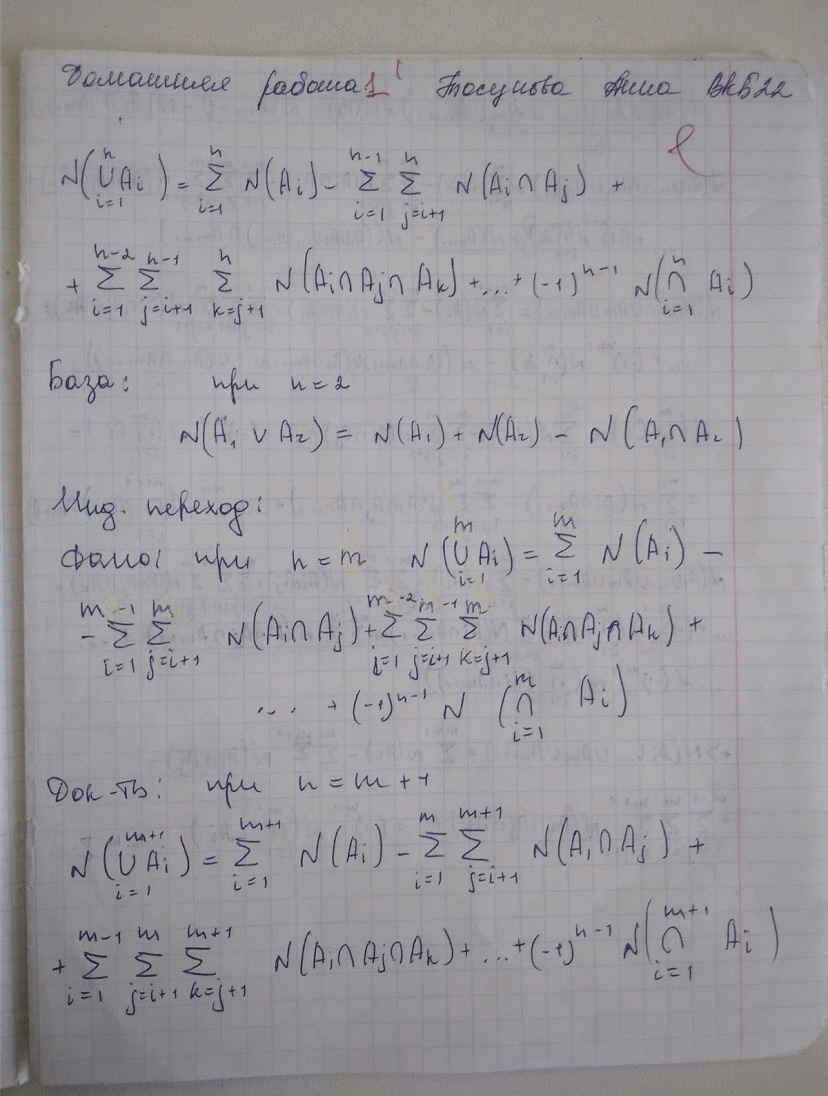 Домашняя работа 1 Тосунова Анна ВКБ22
N(⋃_{i=1}^{n} A_i) = ∑_{i=1}^{n} N(A_i) - ∑_{i=1}^{n-1} ∑_{j=i+1}^{n} N(A_i ∩ A_j) +
+ ∑_{i=1}^{n-2} ∑_{j=i+1}^{n-1} ∑_{k=j+1}^{n} N(A_i ∩ A_j ∩ A_k) + ... + (-1)^{n-1} N(⋂_{i=1}^{n} A_i)
База: при n = 2
N(A_1 ∪ A_2) = N(A_1) + N(A_2) - N(A_1 ∩ A_2)
Инд. переход:
Дано: при n = m N(⋃_{i=1}^{m} A_i) = ∑_{i=1}^{m} N(A_i) -
- ∑_{i=1}^{m-1} ∑_{j=i+1}^{m} N(A_i ∩ A_j) + ∑_{i=1}^{m-2} ∑_{j=i+1}^{m-1} ∑_{k=j+1}^{m} N(A_i ∩ A_j ∩ A_k) +
... + (-1)^{n-1} N(⋂_{i=1}^{m} A_i)
Док-ть: при n = m + 1
N(⋃_{i=1}^{m+1} A_i) = ∑_{i=1}^{m+1} N(A_i) - ∑_{i=1}^{m} ∑_{j=i+1}^{m+1} N(A_i ∩ A_j) +
+ ∑_{i=1}^{m-1} ∑_{j=i+1}^{m} ∑_{k=j+1}^{m+1} N(A_i ∩ A_j ∩ A_k) + ... + (-1)^{n-1} N(⋂_{i=1}^{m+1} A_i)